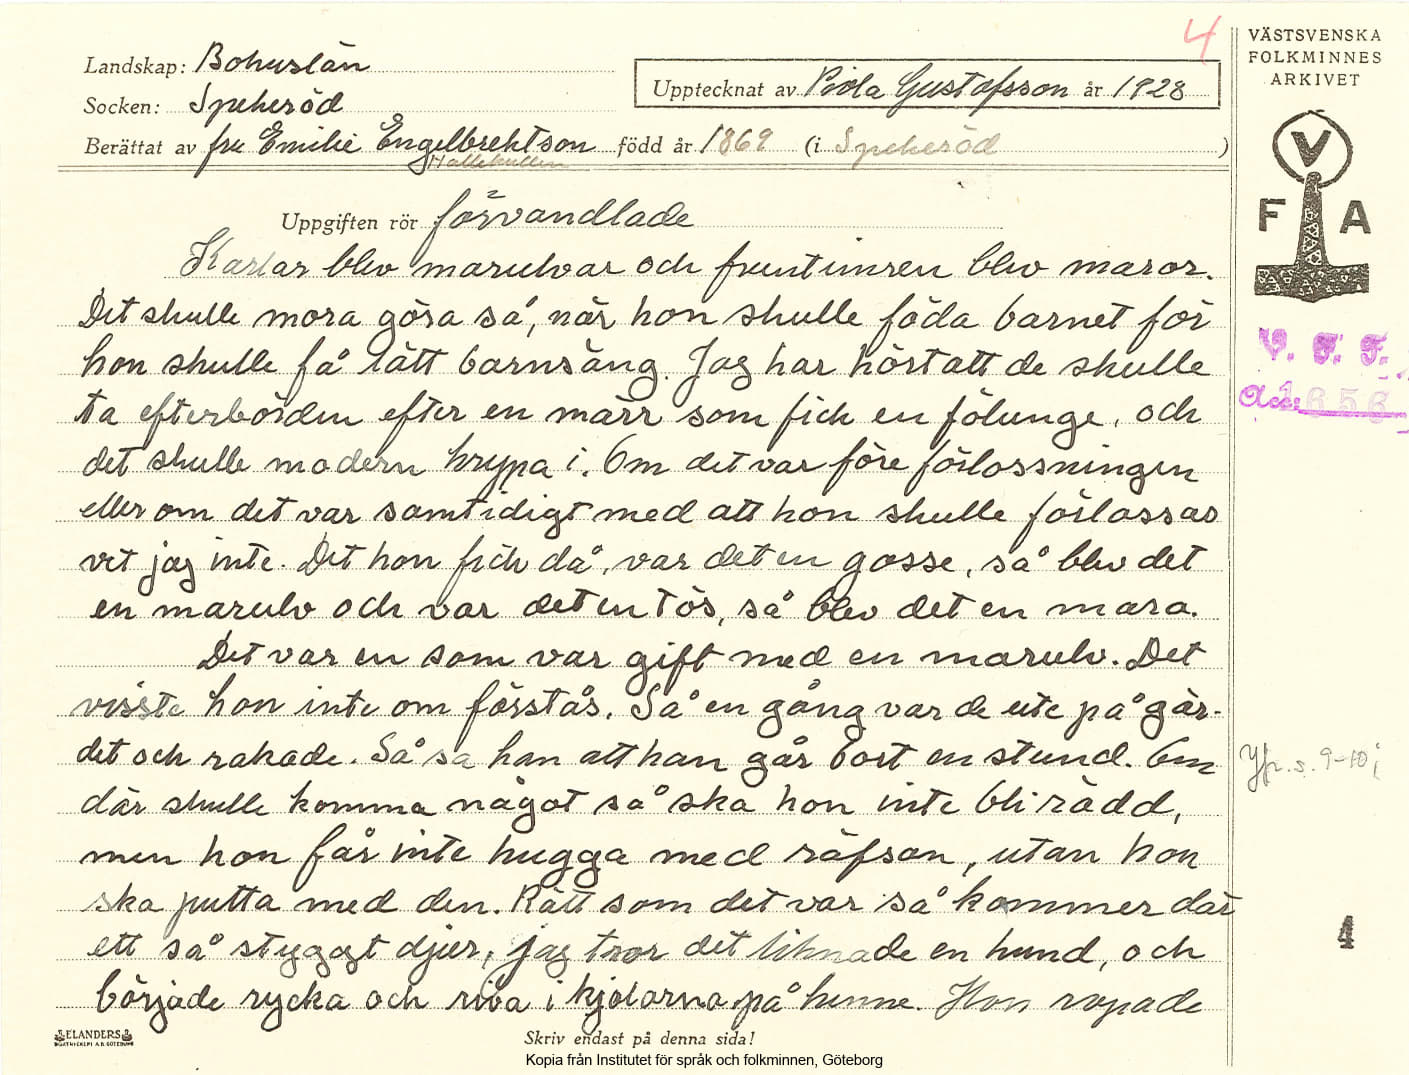 4
Landskap: Bohuslän
Socken: Spekeröd
Upptecknat av Viola Gustafsson år 1928
Berättat av fru Emilie Engelbrektson född år 1869 (i Spekeröd )
Hällekullen
Uppgiften rör förvandlade
Karlar blev marulvar och fruntimren blev maror.
Det skulle mora göra så, när hon skulle föda barnet för
hon skulle få lätt barnsäng. Jag har hört att de skulle
ta efterbörden efter en märr som fick en fölunge, och
det skulle modern krypa i. Om det var före förlossningen
eller om det var samtidigt med att hon skulle förlossas
vet jag inte. Det hon fick då, var det en gosse, så blev det
en marulv och var det en tös, så blev det en mara.
Det var en som var gift med en marulv. Det
visste hon inte om förstås. Så en gång var de ute på gär-
det och rakade. Så sa han att han går bort en stund. Om
där skulle komma något så ska hon inte bli rädd,
men hon får inte hugga med räfsan, utan hon
ska putta med den. Rätt som det var så kommer där
ett så styggt djur, jag tror det liknade en hund, och
började rycka och riva i kjolarna på henne. Hon ropade
Skriv endast på denna sida!
ELANDERS
Kopia från Institutet för språk och folkminnen, Göteborg
VÄSTSVENSKA
FOLKMINNES
ARKIVET
V
F A
V. F. F.
Acc 1656
Jfr. s. 9-10
4